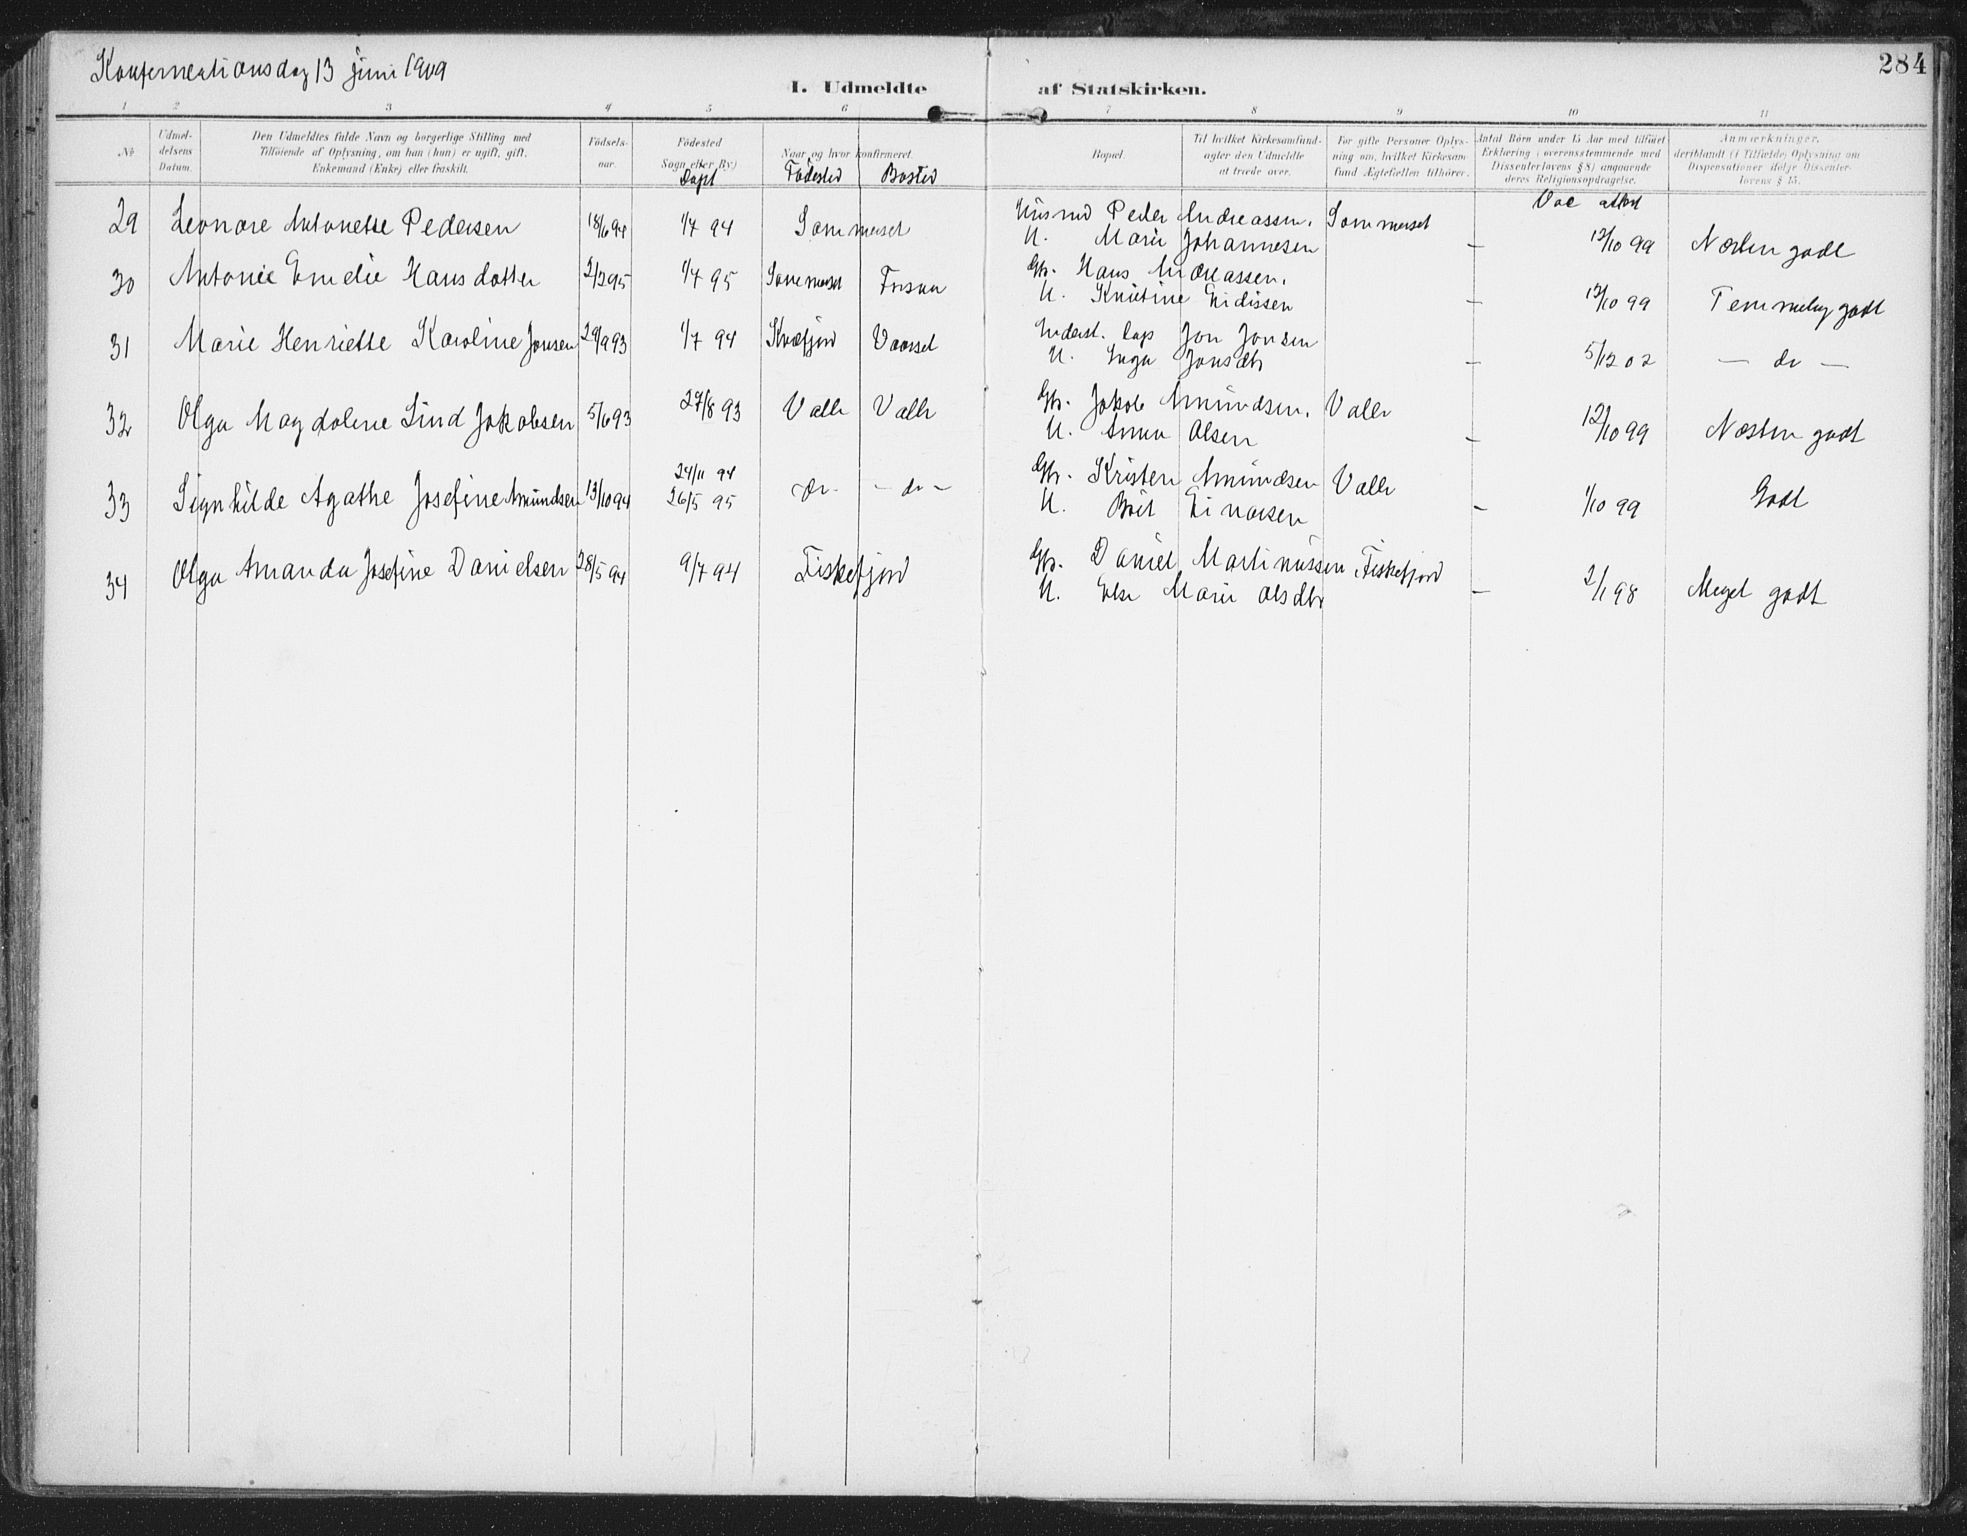 Konfermationsdag 13 juni 1909
284
I. Udmeldte af Statskirken.
1 2 3 4 5 6 7 8 9 10 11
No.
Udmel-
delsens
Datum.
Den Udmeldtes fulde Navn og borgerlige Stilling med
Tilföiende af Oplysning, om han (hun) er ugift, gift,
Enkemand (Enke) eller fraskilt.
Födsels-
aar.
Födested
Sogn eller By)
Døpt
Naar og hvor konfirmeret.
Fødested Bosted
Bopæl.
Til hvilket Kirkesamfund-
agter den Udmeldte
at træde over.
For gifte Personer Oplys-
ning om, hvilket Kirkesam-
fund Ægtefællen tilhörer.
Antal Börn under 15 Aar med tilföiet
Erklæring i overensstemmende med
Dissenterlovens § 8) angaaende
deres Religionsopdragelse.
Vac attest
Anmærkninger,
deriblandt (i Tilfælde) Oplysning om
Dispensationer ifølge Dissenter-
lovens § 15.
29 Leonore Antonette Pedersen 18/6 94 1/7 94 Sommerset Husmd Peder Andreassen, Sommerset
U. Marie Johannesen – 12/10 99 Næsten godt
30 Antonie Emelie Hansdatter 2/2 95 1/7 95 Sommerset Gbr. Hans Andreassen,
U. Kristine – 12/10 99 Temmelig godt
31 Marie Henriette Karoline Jonsen 29/9 93 1/7 94 Kvæfjord Vaasset Inderst. Lap Jon Jonsen
U. Inga Jonsdtr – 5/12 02 – do –
32 Olga Magdalene Lind Jakobsen 5/6 93 27/8 93 Valle Valle Gbr. Jakob Amundsen, Valle
U. Anna Olsen – 12/10 99 Næsten godt
33 Signhilde Agathe Josefine Amundsen 13/10 94 24/11 94 26/5 95 – do – – do – Gbr. Kristen Amundsen Valle
U. Berit Einarsen – 1/10 99 Godt
34 Olga Amanda Josefine Danielsen 28/5 94 9/7 94 Fiskefjord Gbr. Daniel Martinussen, Fiskefjord
U. Else Marie Olsdtr – 2/1 98 Meget godt